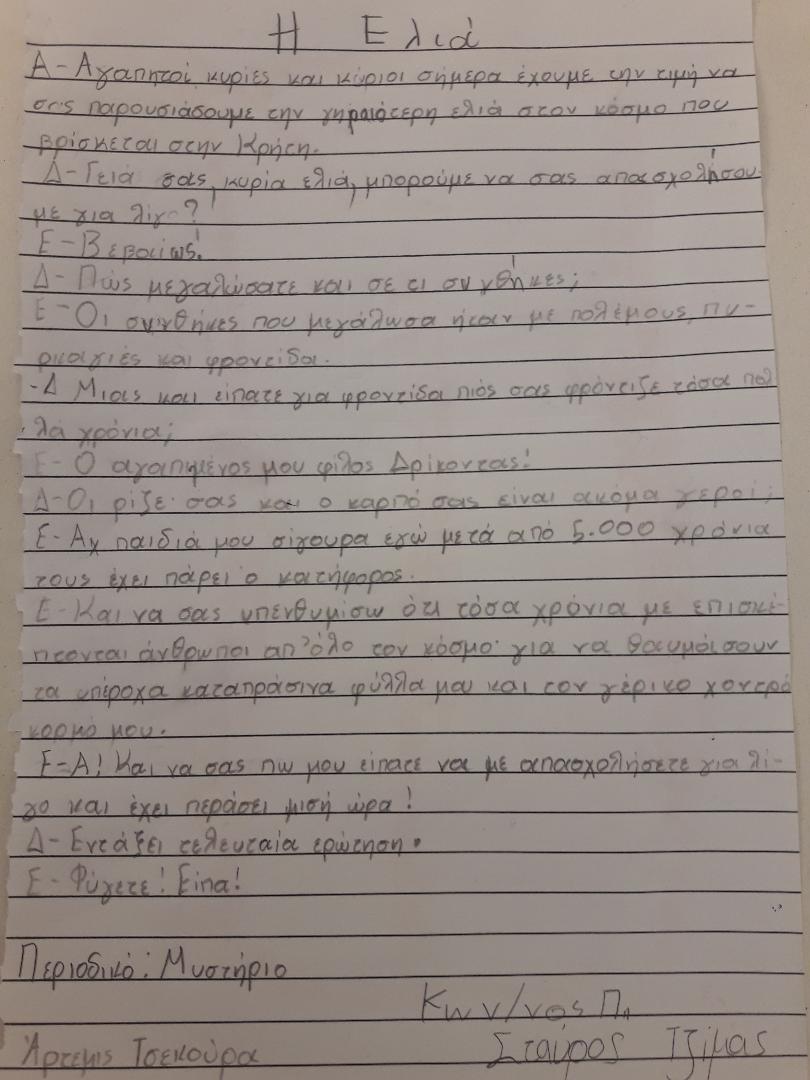 Η Ελιά
Α-Αγαπητοί κυρίες και κύριοι σήμερα έχουμε την τιμή να
σας παρουσιάσουμε την γηραιότερη ελιά στον κόσμο που
βρίσκεται στην Κρήτη.
Δ-Γειά σας, κυρία ελιά, μπορούμε να σας απασχολήσου-
με για λίγο?
Ε-Βεβαίως!
Δ-Πώς μεγαλώσατε και σε τι συνθήκες;
Ε-Οι συνθήκες που μεγάλωσα ήταν με πολέμους, πυ-
ρκαγιές και φροντίδα.
-Δ Μιας και είπατε για φροντίδα πιός σας φρόντιζε τόσα πολ
λά χρόνια;
Ε-Ο αγαπημένος μου φίλος Δρίκοντας!
Δ-Οι ρίζε σας και ο καρπό σας είναι ακόμα γεροί;
Ε-Αχ παιδιά μου σίγουρα εγώ μετά από 5.000 χρόνια
τους έχει πάρει ο κατήφορος.
Ε-Και να σας υπενθυμίσω ότι τόσα χρόνια με επισκέ
πτονται άνθρωποι απ'όλο τον κόσμο για να θαυμάσουν
τα υπέροχα καταπράσινα φύλλα μου και τον γέρικο χοντρό
κορμό μου.
Ε-Α! Και να σας πω μου είπατε να με απασχολήσετε για λί-
γο και έχει περάσει μισή ώρα!
Δ-Εντάξει τελευταία ερώτηση.
Ε-Φύγετε! Είπα!
Περιοδικό: Μυστήριο
Κων/νος Π.
Άρτεμις Τσεκούρα Σταύρος Τζίμας